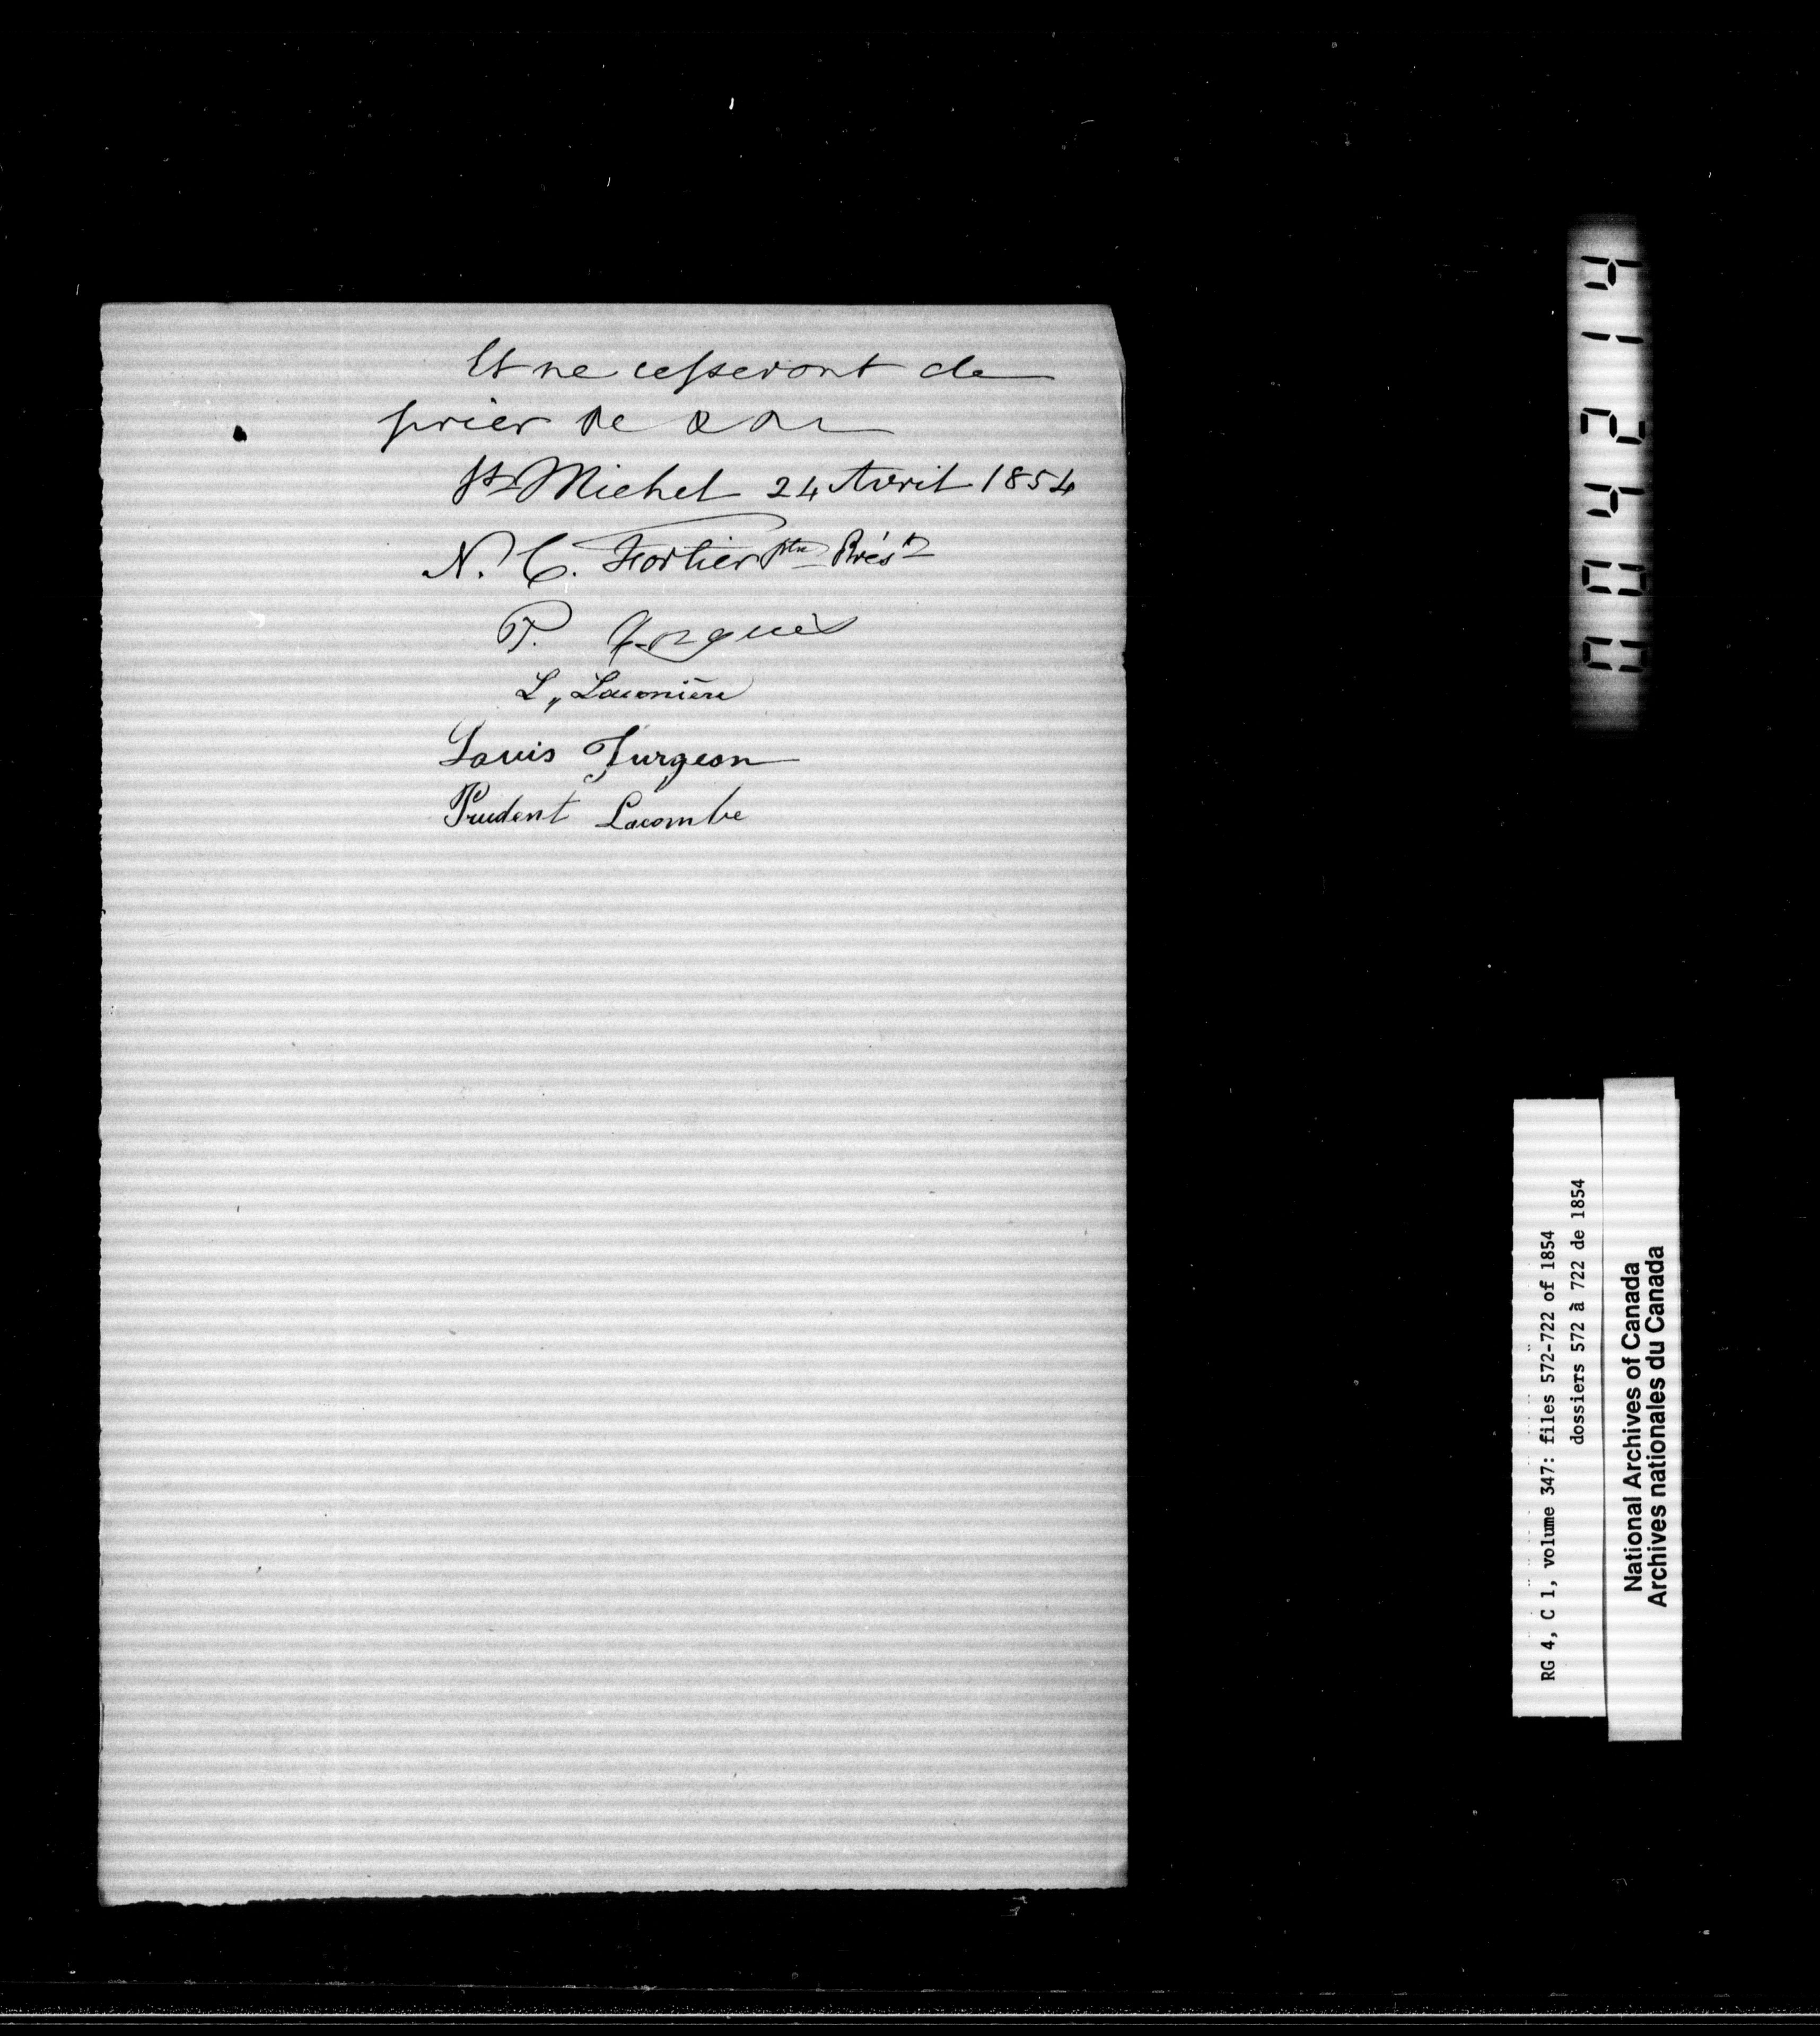 Et ne cesseront de
prier &c &c &c
St Michel 24 Avril 1854
N. C. Fortier Ptre Prést
P. Forgues
L. Lacomière
Louis Turgeon
Prudent Lacombe
004214
RG 4, C 1, volume 347: files 572-722 of 1854
dossiers 572 à 722 de 1854
National Archives of Canada
Archives nationales du Canada